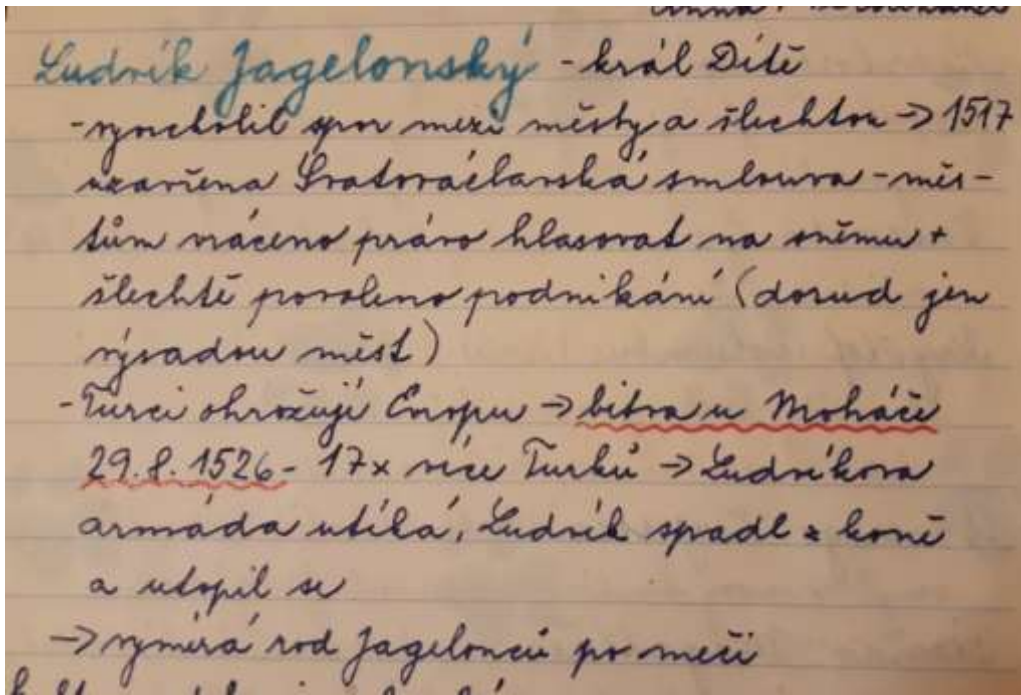 Ludvík Jagelonský - král Dítě
- vyvrcholil spor mezi městy a šlechtou -> 1517
uzavřena Svatováclavská smlouva - měs-
tům vráceno právo hlasovat na sněmu +
šlechtě povoleno podnikání (dosud jen
výsadou měst)
- Turci ohrožují Evropu -> bitva u Moháče
29.8.1526 - 17x více Turků -> Ludvíkova
armáda utíká, Ludvík spadl z koně
a utopil se
-> vymírá rod Jagelonců po meči